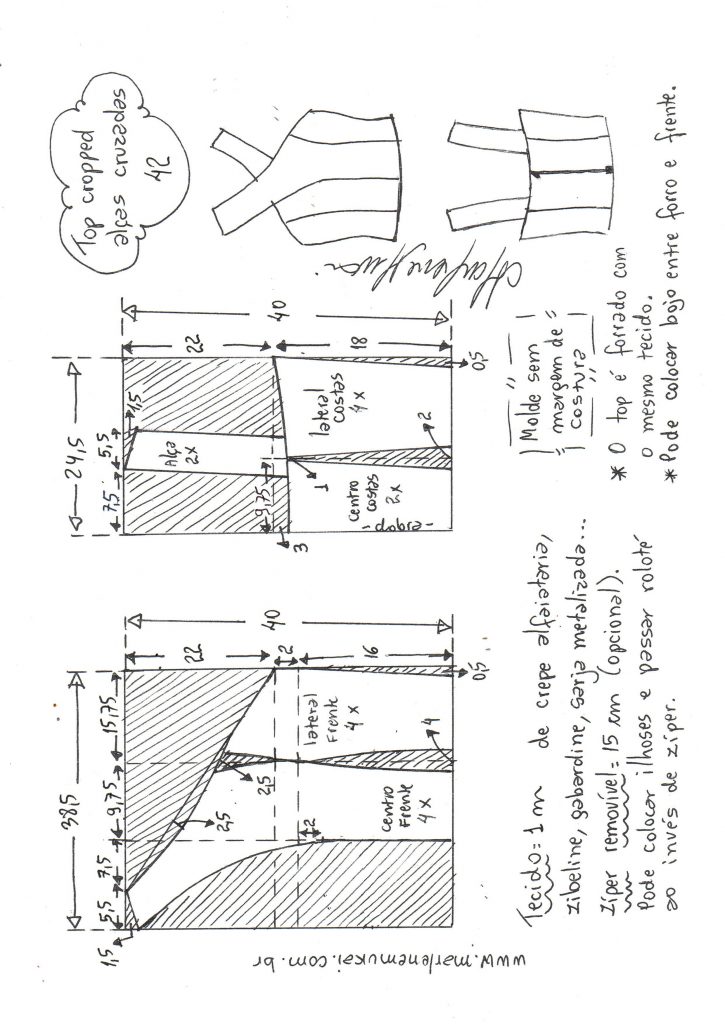 Top cropped
alças cruzadas
42
38,5
5,5
7,5
9,75
15,75
1,5
22
40
2
16
2,5
2,5
2
lateral
Frente
4x
centro
Frente
4x
4
0,5
24,5
7,5
5,5
1,5
22
40
18
Alça
2x
9,75
3
1
centro
costas
2x
lateral
costas
4x
2
0,5
Molde sem
margem de
costura
* O top é forrado com
o mesmo tecido.
* Pode colocar bojo entre forro e frente.
Tecido = 1 m de crepe alfaiataria,
zibeline, gabardine, sarja metalizada...
Zíper removível = 15 cm (opcional).
Pode colocar ilhoses e passar roloté
ao invés de zíper.
www.marlenemukai.com.br